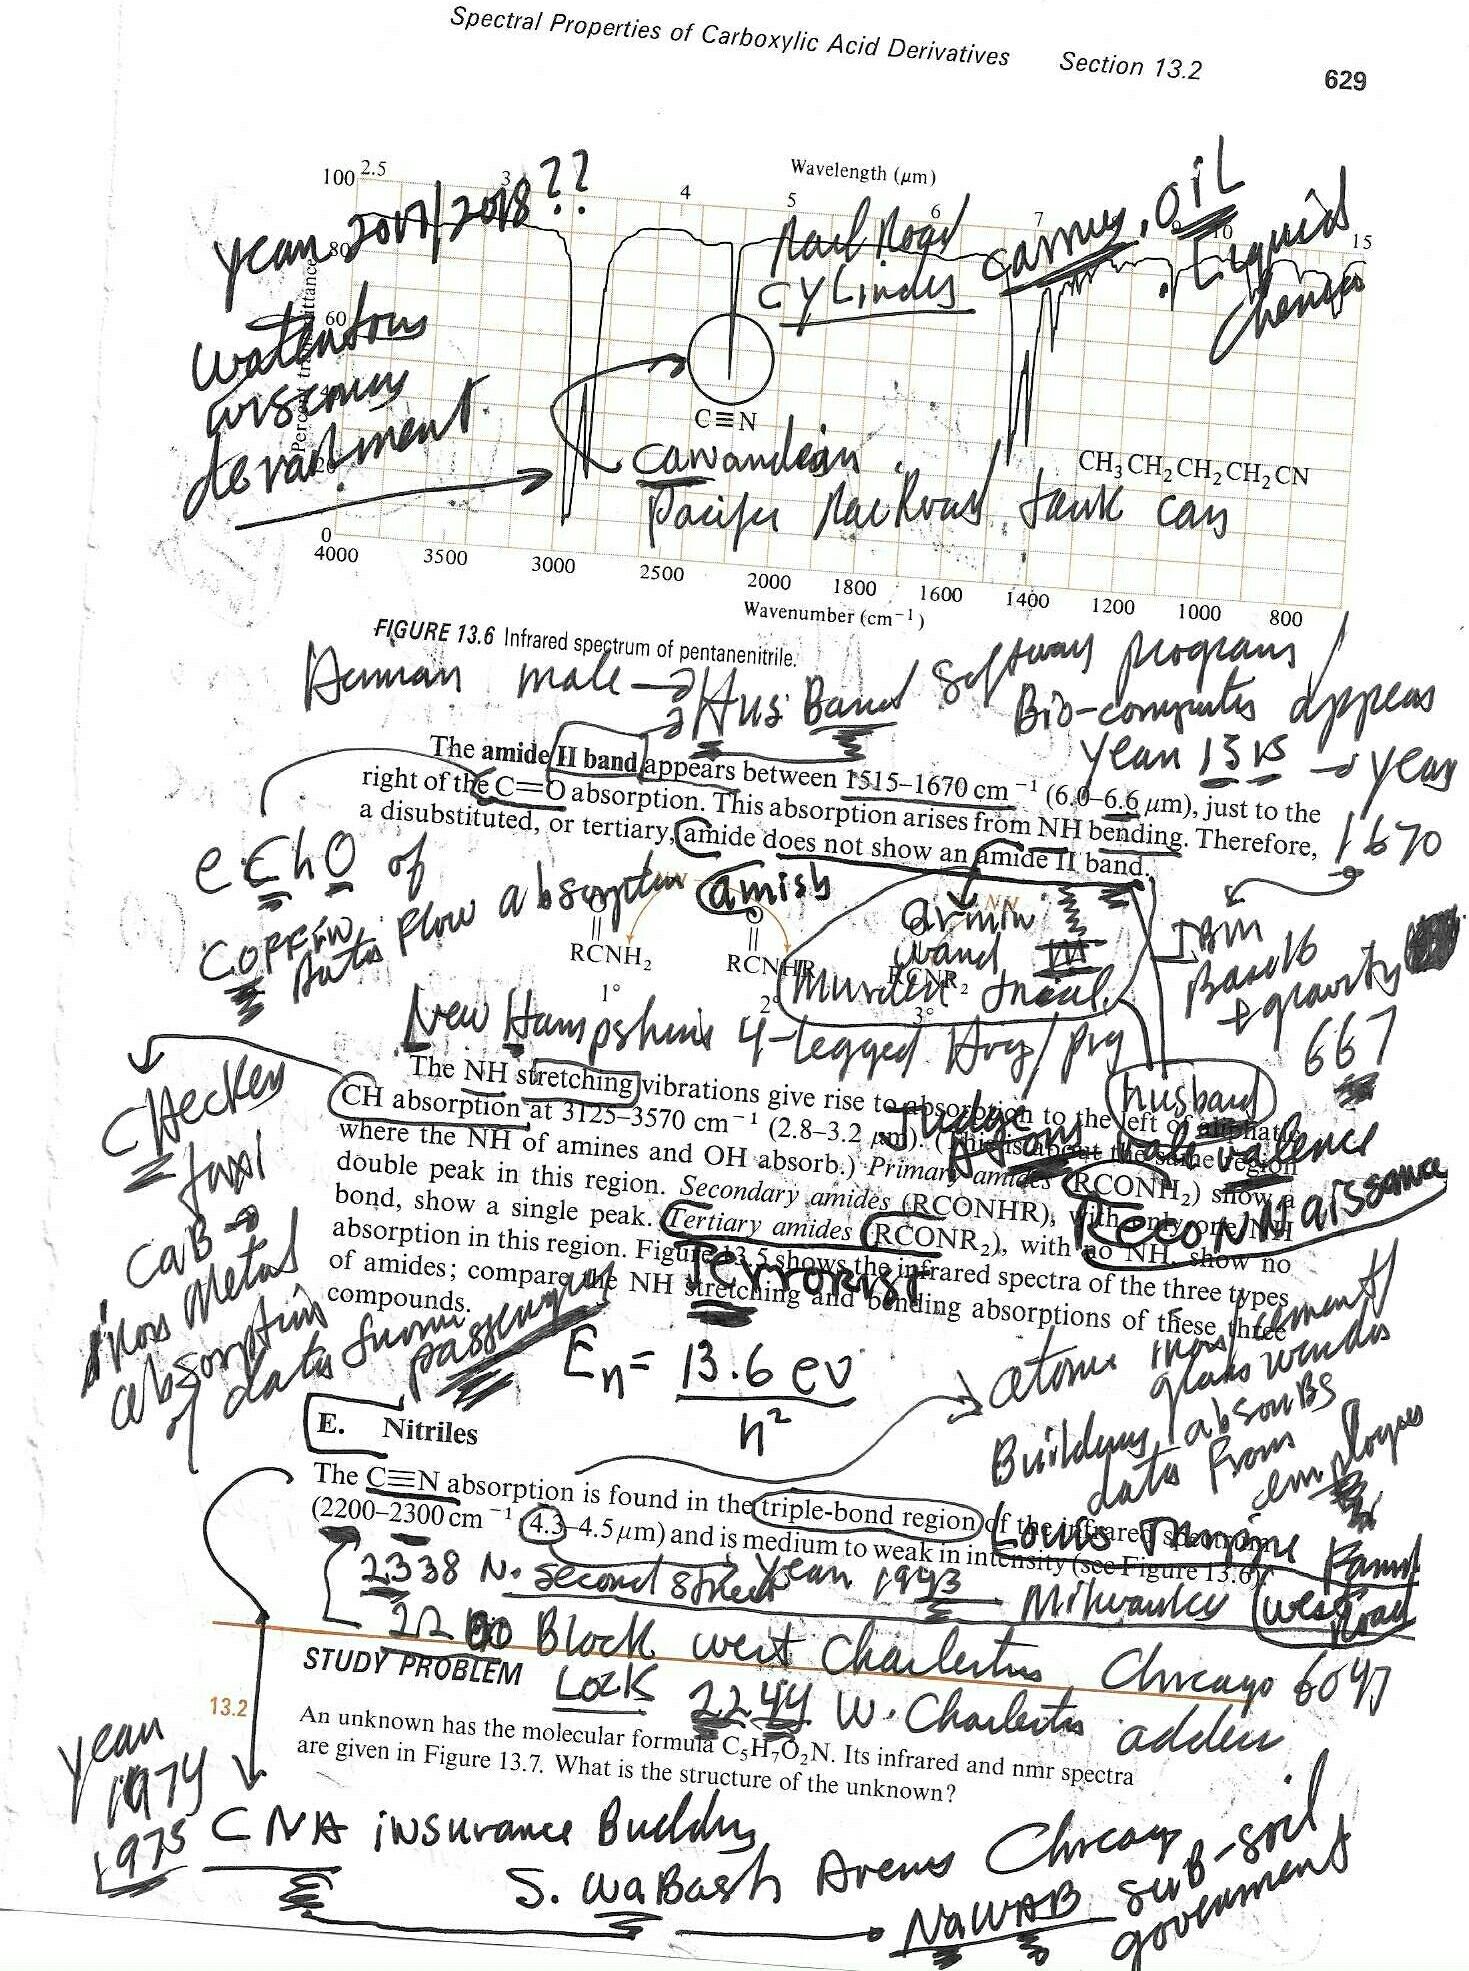 Spectral Properties of Carboxylic Acid Derivatives Section 13.2 629
Wavelength (μm)
100 2.5 3 4 5 6 7 15
year 2017/2018??
RailRoad
cylinder
carries oil
Liquid
80
60
derailment
C≡N
CH₃CH₂CH₂CH₂CN
Pacific RailRoad tank cars
0
4000 3500 3000 2500 2000 1800 1600 1400 1200 1000 800
Wavenumber (cm⁻¹)
FIGURE 13.6 Infrared spectrum of pentanenitrile.
Human male → HusBand software program
Bio-computer appears
year 1515 → year
1670
The amide II band appears between 1515–1670 cm⁻¹ (6.0–6.6 μm), just to the
right of the C=O absorption. This absorption arises from NH bending. Therefore,
a disubstituted, or tertiary, amide does not show an amide II band.
eChO of
Copper
Auto flow absorption
amish
armin
wand
Murder trial
IBM
Base 16
gravity
667
RCNH₂ RCNHR RCNR₂
1° 2° 3°
New Hampshire 4-legged Hog/pig
husband
The NH stretching vibrations give rise to absorption to the left of aliphatic
CH absorption at 3125–3570 cm⁻¹ (2.8–3.2 μm). (This is about the same region
where the NH of amines and OH absorb.) Primary amides (RCONH₂) show a
double peak in this region. Secondary amides (RCONHR), with only one NH
bond, show a single peak. Tertiary amides (RCONR₂), with no NH, show no
absorption in this region. Figure 13.5 shows the infrared spectra of the three types
of amides; compare the NH stretching and bending absorptions of these three
compounds.
Judge
valence
RecoNNaissance
Terrorist
CHecker
taxi
caB →
iron Metal
absorption
of data from
passenger
Eₙ = 13.6 ev
n²
atomic
Building absorBs
data from
employees
E. Nitriles
The C≡N absorption is found in the triple-bond region of the infrared spectrum
(2200–2300 cm⁻¹, 4.3–4.5 μm) and is medium to weak in intensity (see Figure 13.6).
Louis
2338 N. second street year 1993 Milwaukee
West Road
2200 Block west Charleston Chicago 60647
STUDY PROBLEM
Look 2244 W. Charleston
13.2
An unknown has the molecular formula C₅H₇O₂N. Its infrared and nmr spectra
are given in Figure 13.7. What is the structure of the unknown?
year
1974
1975
CNA insurance Building
S. WaBash Avenue Chicago
NaWAB sub-soil
government